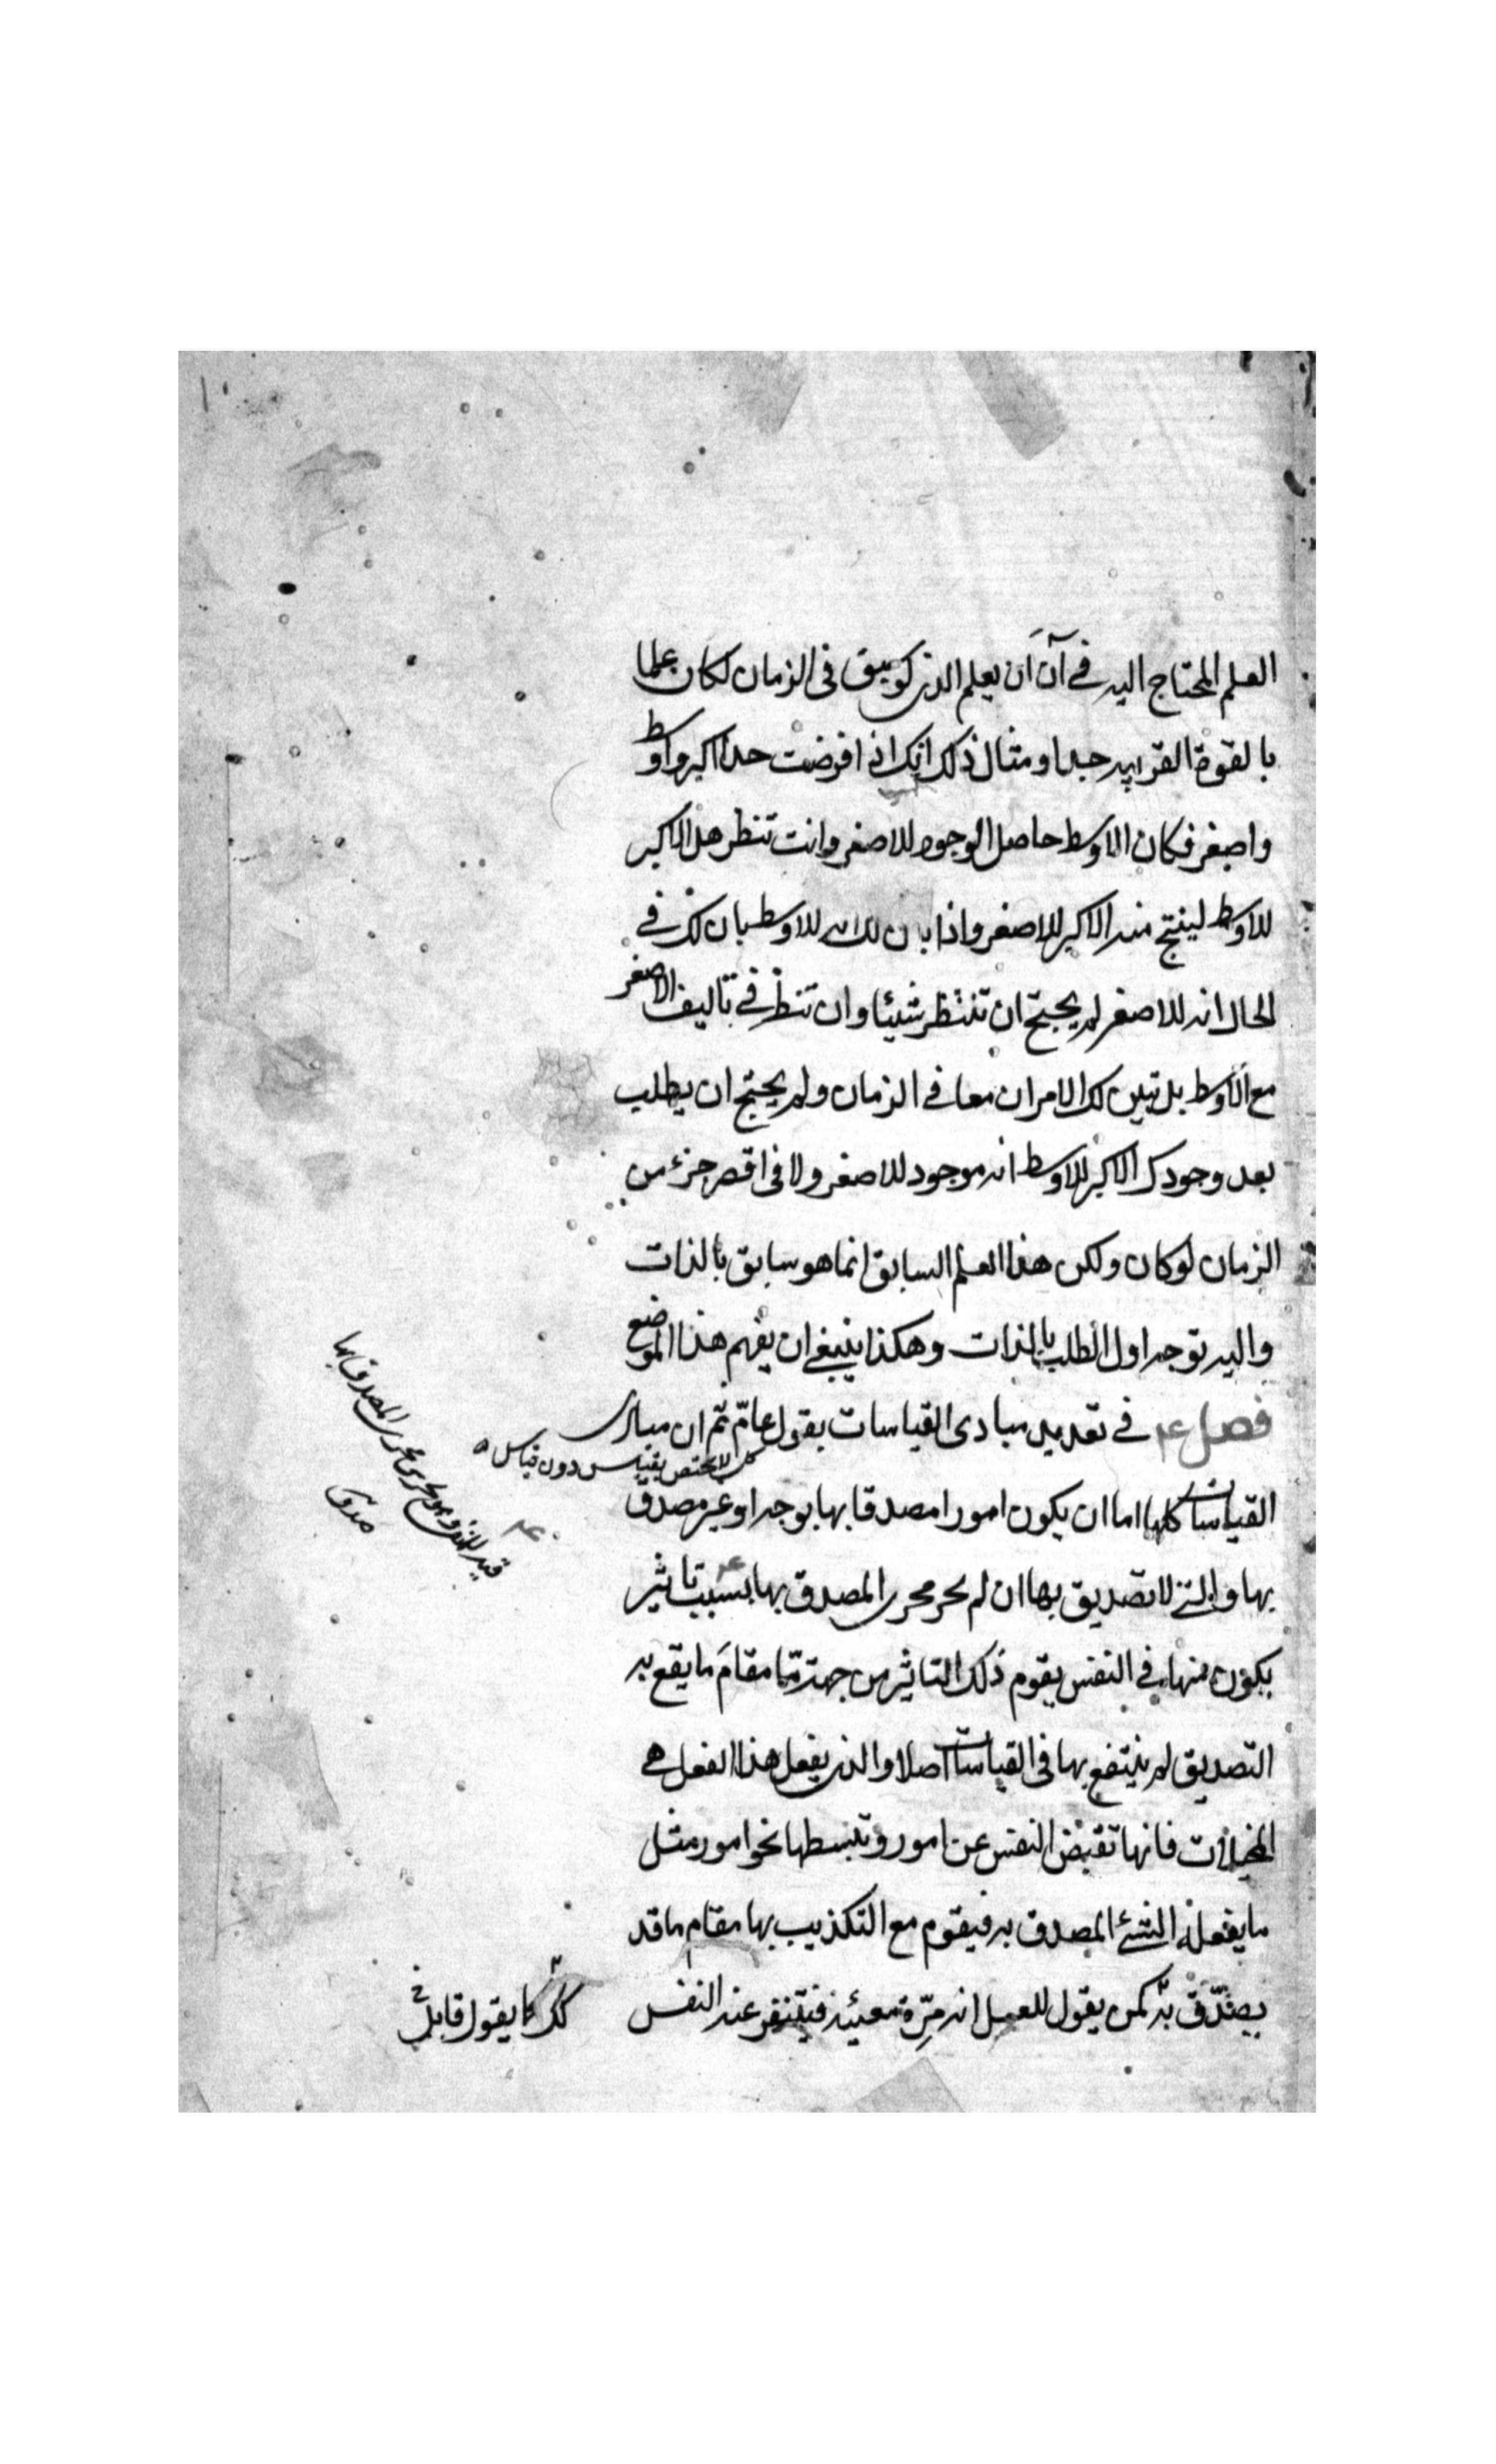 العلم المحتاج اليه في آن ان يعلم الذي لو سبق في الزمان لكان علما
بالقوة القريبه جدا ومثال ذلك انك اذا فرضت حدا اكبر واوسط
واصغر فكان الاوسط حاصل الوجود للاصغر وانت تنظر هل الاكبر
للاوسط لينتج منه الاكبر للاصغر واذا بان لك انه للاوسط بان لك في
الحال انه للاصغر لم يحتج ان تنتظر شيئا وان تنظر في تاليف الاصغر
مع الاوسط بل تبين لك الامران معا في الزمان ولم يحتج ان يطلب
بعد وجودك الاكبر للاوسط انه موجود للاصغر ولا في اقصر جزء من
الزمان لو كان ولكن هذا العلم السابق انما هو سابق بالذات
واليه توجه اول الطلب بالذات وهكذا ينبغي ان يفهم هذا الموضع
فصل في تعديد مبادى القياسات بقول عامّ ثم ان مبادى
كل لا يختص بقياس دون قياس
القياسات كلها اما ان يكون امورا مصدقا بها بوجه او غير مصدق
بها والتي لا تصديق بها ان لم يجر مجرى المصدق بها بسبب تاثير
يكون منها في النفس يقوم ذلك التاثير من جهة مّا مقامَ ما يقع به
التصديق لم ينتفع بها في القياسات اصلا والذي يفعل هذا الفعل هي
المخيلات فانها تقبض النفس عن امور وتبسطها نحو امور مثل
ما يفعله الشيء المصدق به فيقوم مع التكذيب بها مقام ما قد
يصدّق به كمن يقول للعسل انه مِرّة مقيئة فيتنفر عنه النفس
كما يقول قايل
قيد للمنفي وهو يجري مجرى المصدق بها